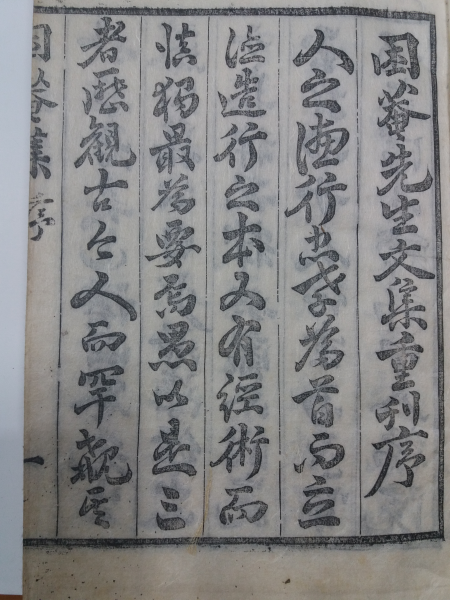 困菴先生文集重刊序
人之德行忠孝為首而立
造行之本又有經術而
愼獨最為要焉愚以是三
者歷觀古今人而罕覩其
困菴集 序 一